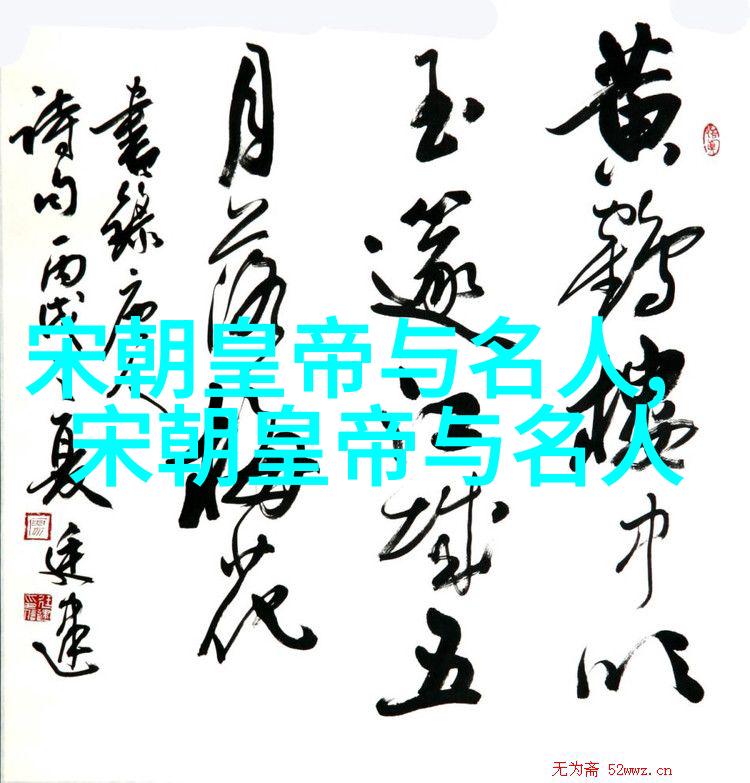 黄鶴樓中吹
玉篴江城五
月落梅花
書錄唐人
詩句丙戌夏廷建
宋朝皇帝与名人,
宋朝皇帝与名人
无为斋 52wwz.cn